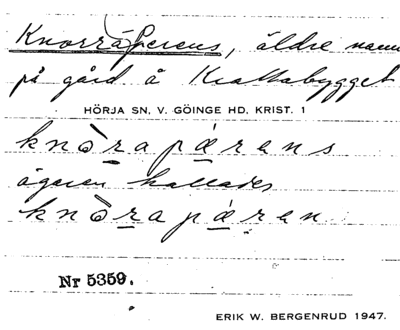 Knorraperens, äldre namn
på gård å Krattabygget
HÖRJA SN, V. GÖINGE HD, KRIST. 1
knòrapǽrens
ägaren kallades
knòrapǽren
Nr 5359.
ERIK W. BERGENRUD 1947.